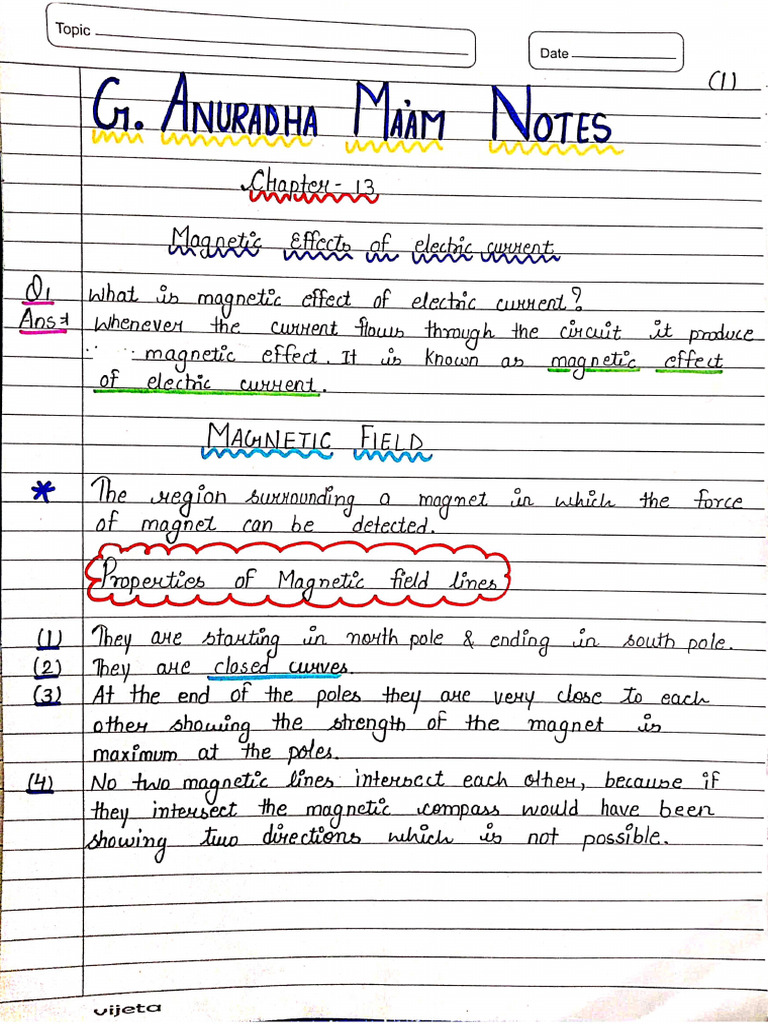 Topic
Date
(1)
G. ANURADHA MA'AM NOTES
Chapter - 13
Magnetic Effects of electric current
Q1 What is magnetic effect of electric current?
Ans→ Whenever the current flows through the circuit it produce
magnetic effect. It is known as magnetic effect
of electric current.
MAGNETIC FIELD
* The region surrounding a magnet in which the force
of magnet can be detected.
Properties of Magnetic field lines
(1) They are starting in north pole & ending in south pole.
(2) They are closed curves.
(3) At the end of the poles they are very close to each
other showing the strength of the magnet is
maximum at the poles.
(4) No two magnetic lines intersect each other, because if
they intersect the magnetic compass would have been
showing two directions which is not possible.
vijeta